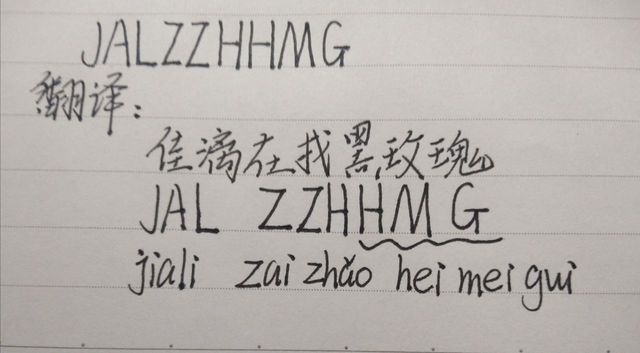 JALZZHHMG
翻译：
佳漓在找黑玫瑰
JAL ZZHHMG
jiali zai zhǎo hei mei gui